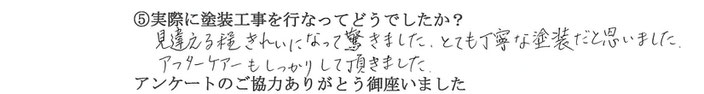 ⑤実際に塗装工事を行なってどうでしたか？
見違える程きれいになって驚きました。とても丁寧な塗装だと思いました。
アフターケアーもしっかりして頂きました。
アンケートのご協力ありがとう御座いました